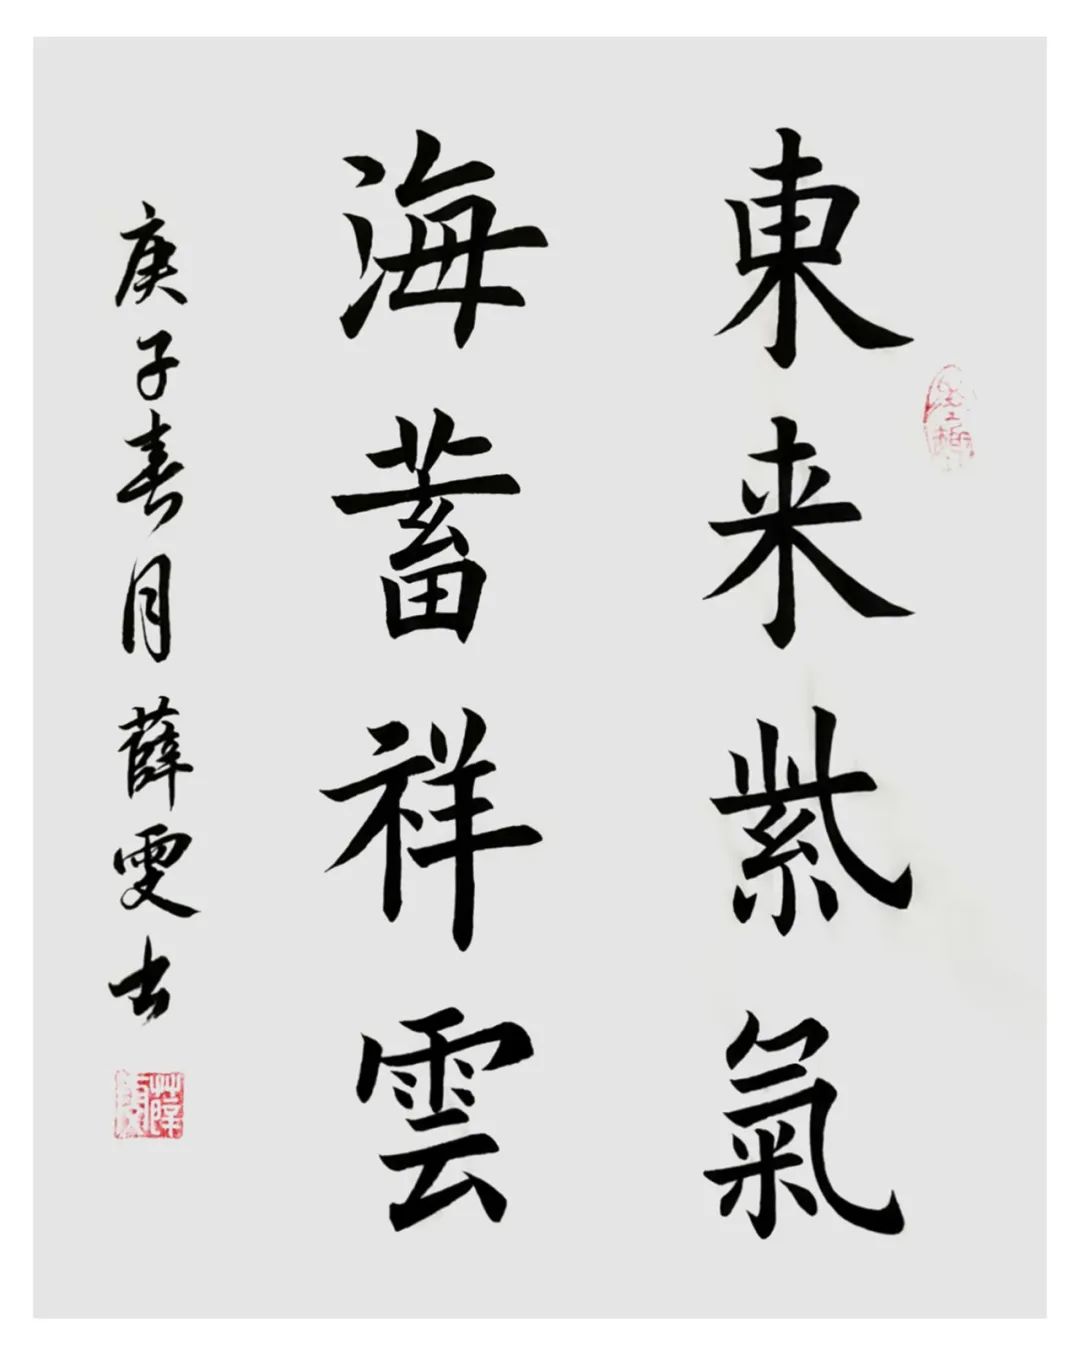 東来紫氣
海蓄祥雲
庚子春月薛雯书